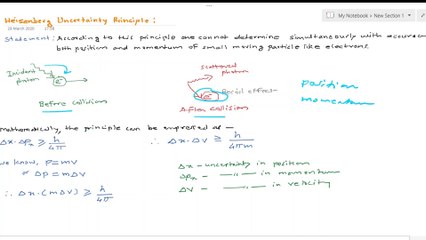 Heisenberg Uncertainty Principle:
My Notebook > New Section 1
Statement: According to this principle one cannot determine simultaneously with accurac
both position and momentum of small moving particle like electrons.
Incident photon
e⁻
Before collision
Scattered photon
e⁻
effect
After collision
position
momentum
Mathematically, the principle can be expressed as —
Δx·Δpx ≥ h/4π
∴ Δx·ΔV ≥ h/4πm
we know, p=mv
Δp=mΔV
∴ Δx·(mΔV) ≥ h/4π
Δx – uncertainty in position
Δpx – —"— in momentum
ΔV – —"— in velocity